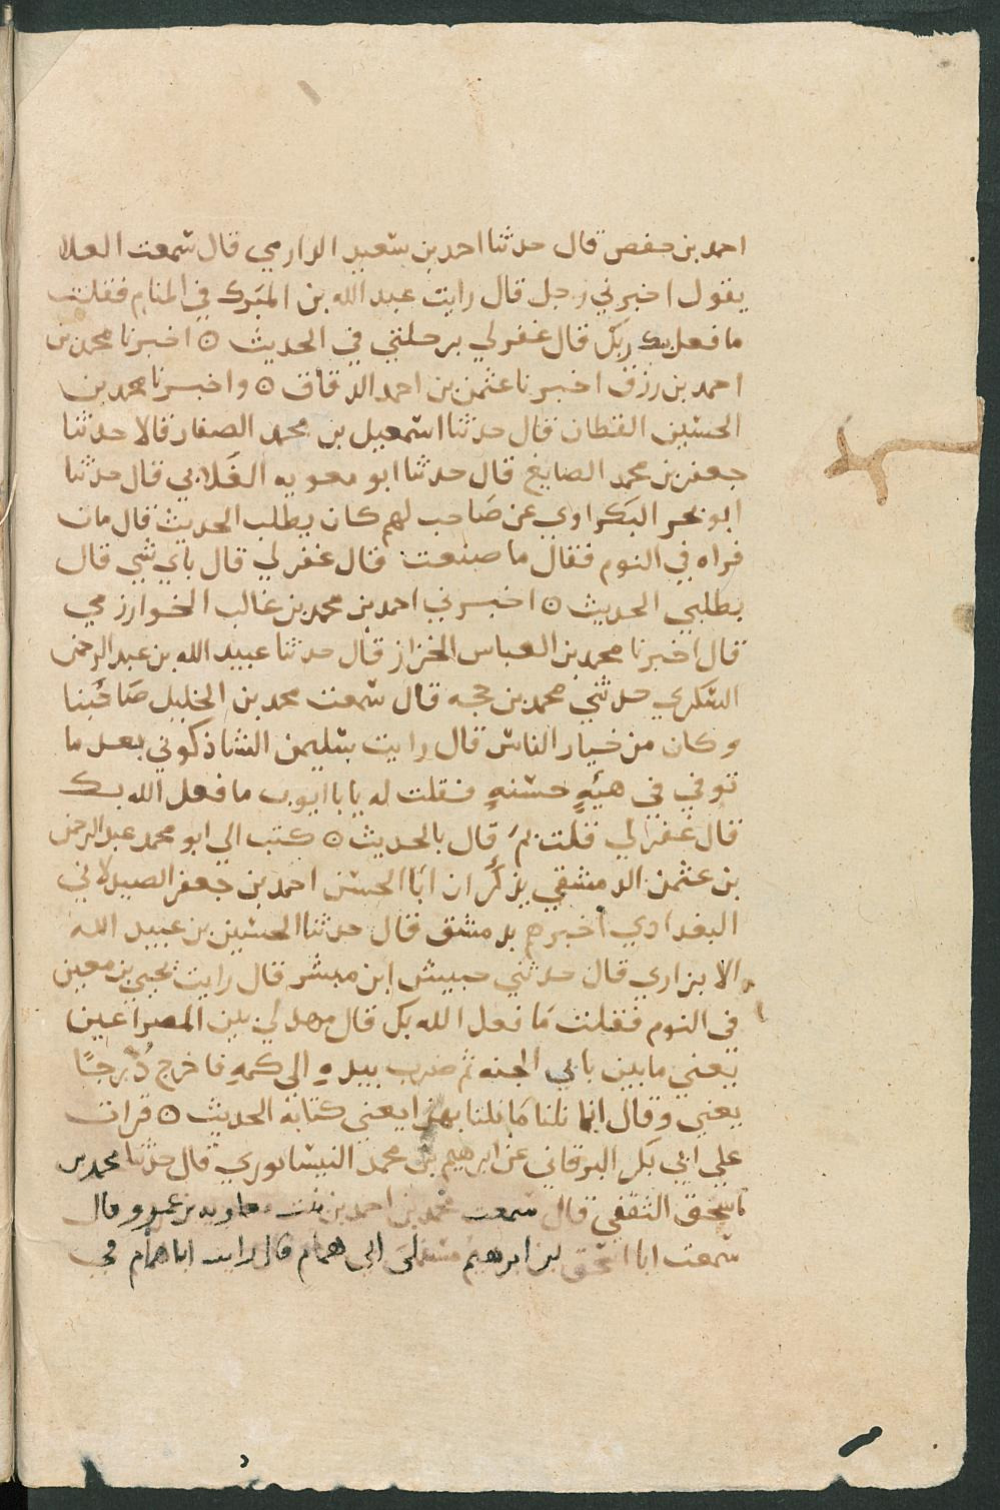 احمد بن حفص قال حدثنا احمد بن سعيد الدارمي قال سمعت العلا
يقول اخبرني رجل قال رايت عبد الله بن المبرك في المنام فقلت
ما فعل بك ربك قال غفر لي برحلتي في الحديث ٥ اخبرنا محمد بن
احمد بن رزق اخبرنا عثمن بن احمد الدقاق ٥ واخبرنا محمد بن
الحسين القطان قال حدثنا اسمعيل بن محمد الصفار قالا حدثنا
جعفر بن محمد الصايغ قال حدثنا ابو معويه الغلابي قال حدثنا
ابو بحر البكراوي عن صاحب لهم كان يطلب الحديث قال مات
فراه في النوم فقال ما صنعت قال غفر لي قال باي شي قال
بطلبي الحديث ٥ اخبرني احمد بن محمد بن غالب الخوارزمي
قال اخبرنا محمد بن العباس الخزاز قال حدثنا عبيد الله بن عبد الرحمن
السكري حدثني محمد بن حجه قال سمعت محمد بن الخليل صاحبنا
وكان من خيار الناس قال رايت سليمن الشاذكوني بعد ما
توفي في هيئه حسنه فقلت له يا با ايوب ما فعل الله بك
قال غفر لي قلت بم قال بالحديث ٥ كتب الي ابو محمد عبد الرحمن
بن عثمن الدمشقي يذكر ان ابا الحسن احمد بن جعفر الصيدلاني
البغدادي اخبرهم بدمشق قال حدثنا الحسين بن عبيد الله
الابزاري قال حدثني حبيش ابن مبشر قال رايت يحيى بن معين
في النوم فقلت ما فعل الله بك قال مهد لي بين المصراعين
يعني ما بين بابي الجنه ثم ضرب بيده الى كمه فاخرج درجا
يعني وقال انما نلنا ما نلنا بهذا يعني كتابه الحديث ٥ قرات
على ابي بكر البرقاني عن ابرهيم بن محمد النيسابوري قال حدثنا محمد بن
اسحق الثقفي قال سمعت محمد بن احمد بن بنت معاويه بن عمرو قال
سمعت ابا اسحق بن ابرهيم مستملي ابي همام قال رايت ابا همام في